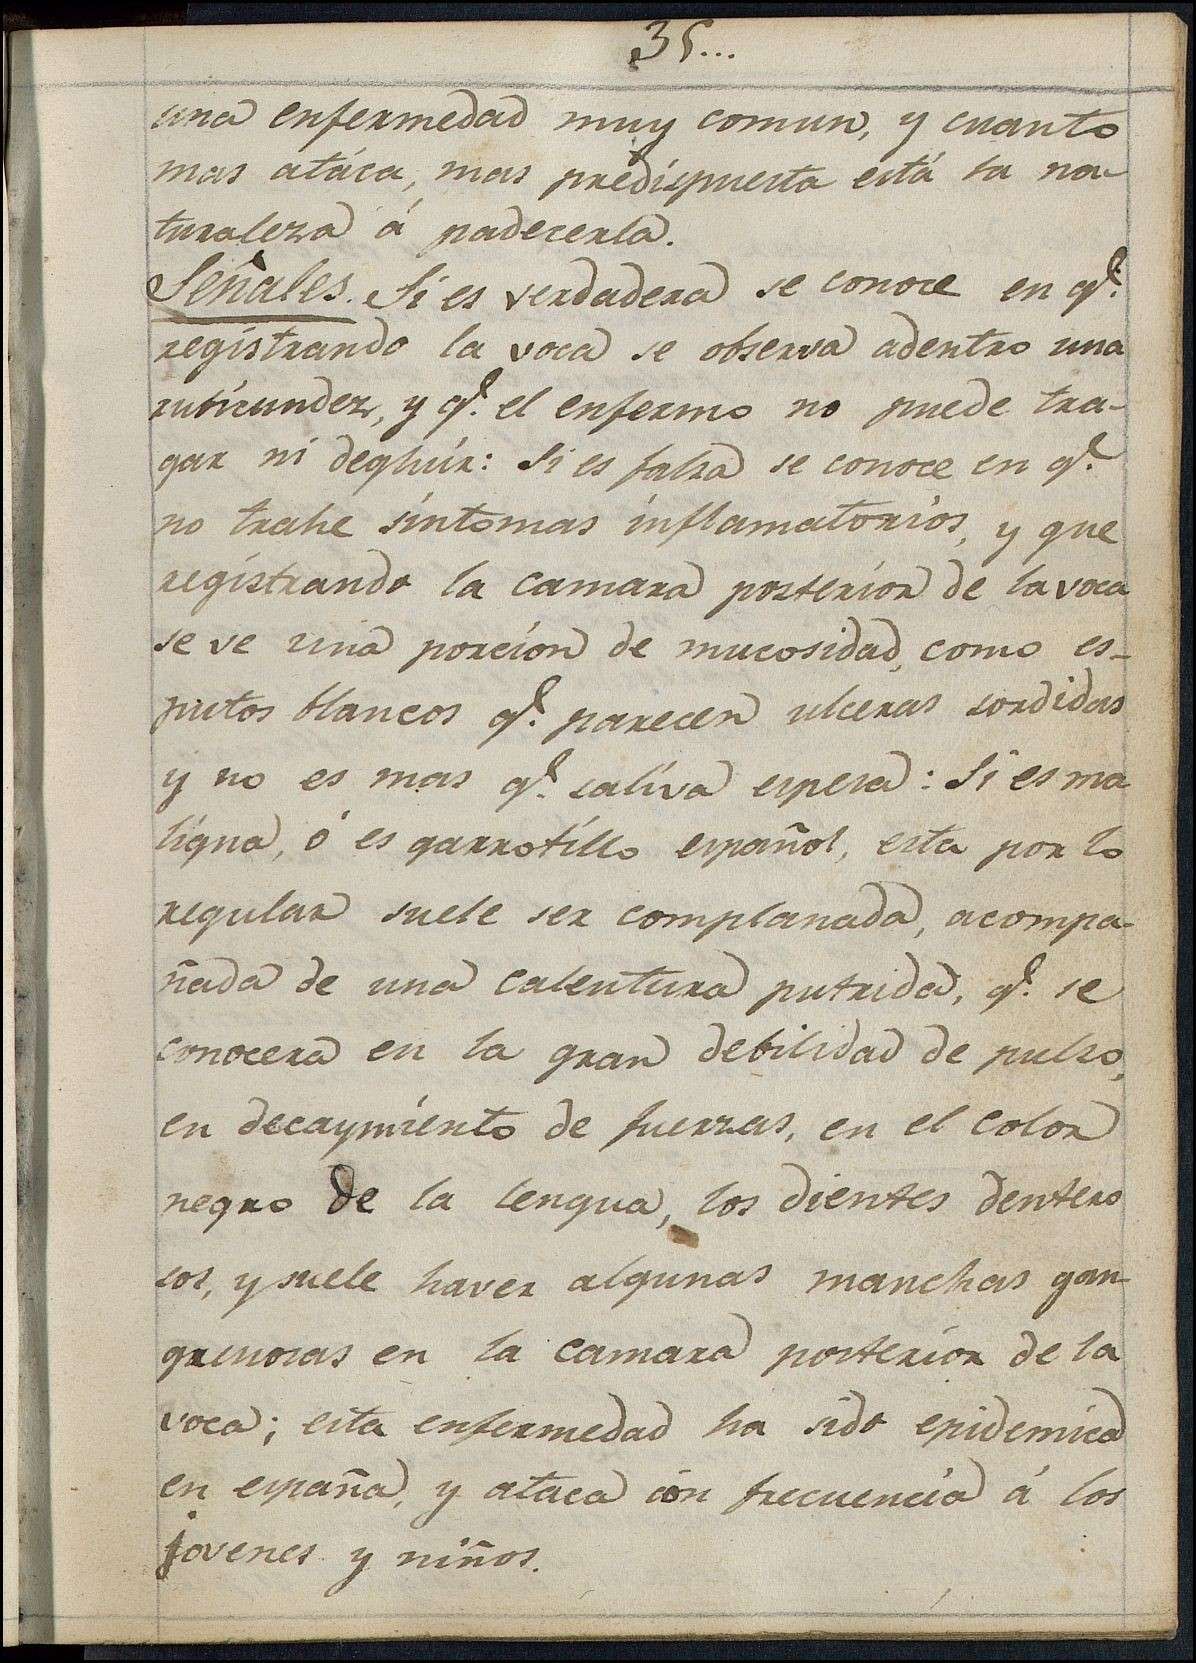 35...
una enfermedad muy comun, y cuanto
mas atáca, mas predispuesta está la na-
turaleza á padecerla.
Señales. Si es verdadera se conoce en q.e
registrando la voca se observa adentro una
rubicundez, y q.e el enfermo no puede tra-
gar ni deglutir: Si es falsa se conoce en q.e
no trahe síntomas inflamatorios, y que
registrando la camara posterior de la voca
se ve una porcion de mucosidad, como es-
putos blancos q.e parecen ulceras sordidas
y no es mas q.e saliva espesa: Si es ma
ligna, ó es garrotillo español, esta por lo
regular suele ser complanada, acompa-
ñada de una calentura putrida, q.e se
conocera en la gran debilidad de pulso,
en decaymiento de fuerzas, en el color
negro de la lengua, los dientes dentero
sos, y suele haver algunas manchas gan-
grenosas en la camara posterior de la
voca; esta enfermedad ha sido epidemica
en españa, y ataca con frecuencia á los
jovenes y niños.